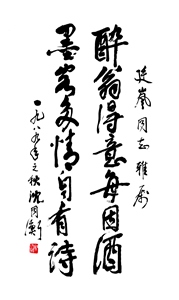 延岚同志雅属
醉翁得意每因酒
墨客多情自有诗
一九八九年之秋沈同衡